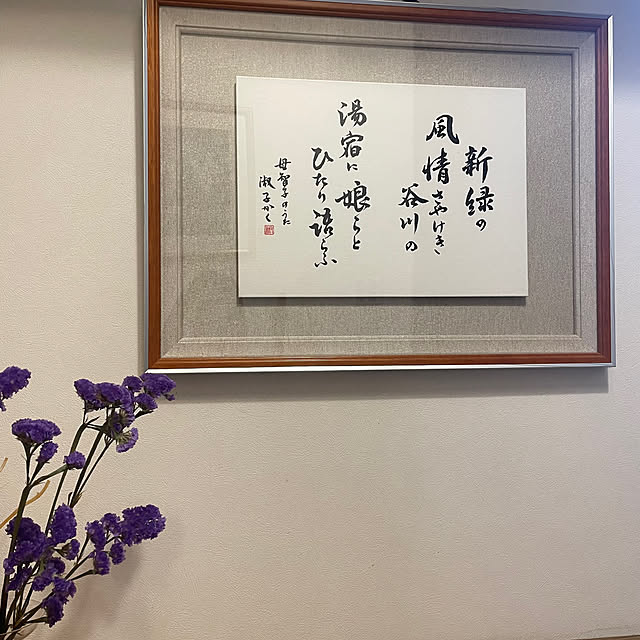 新緑の
風情さやけき
谷川の
湯宿に
娘らと
ひたり語らふ
母智子のうた
淑子かく